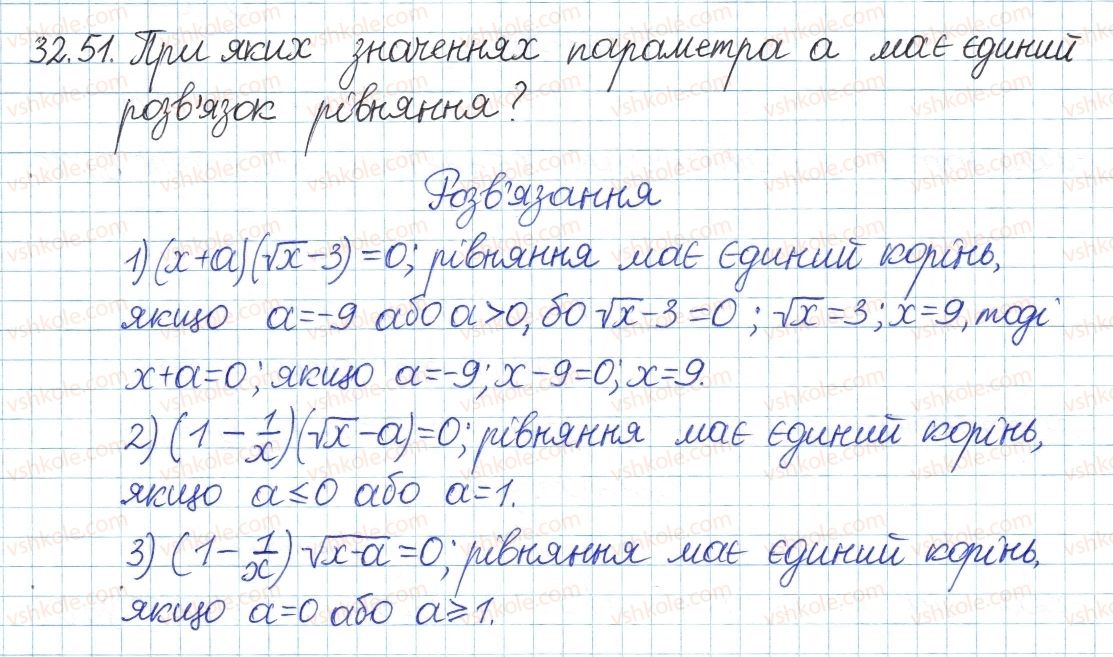 32.51. При яких значеннях параметра а має єдиний
розв'язок рівняння?
Розв'язання
1) (x+a)(√x-3)=0; рівняння має єдиний корінь,
якщо a=-9 або a>0, бо √x-3=0; √x=3; x=9, тоді
x+a=0; якщо a=-9; x-9=0; x=9.
2) (1-1/x)(√x-a)=0; рівняння має єдиний корінь,
якщо a≤0 або a=1.
3) (1-1/x)√x-a=0; рівняння має єдиний корінь,
якщо a=0 або a≥1.